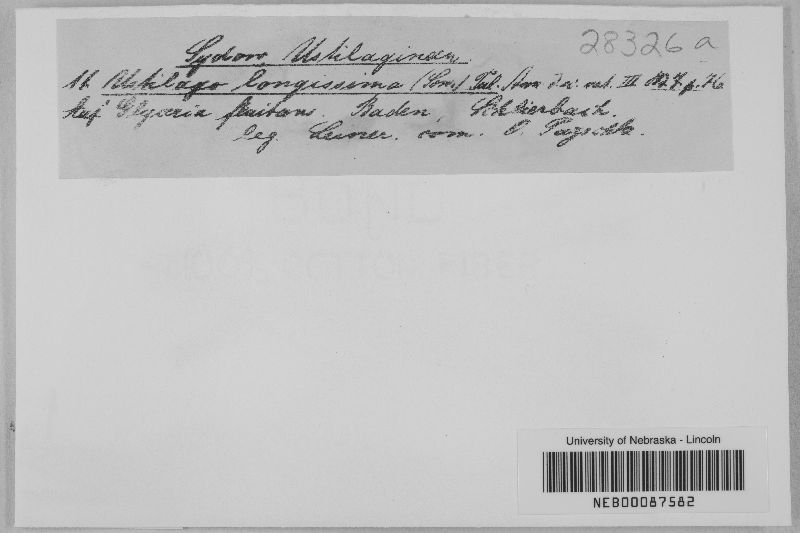 28326 a
Sydow Ustilagineen.
11. Ustilago longissima (Sow.) Tul. Ann. d. sc. nat. III 1847 p. 76
Auf Glyceria fluitans. Baden,
leg. Leiner. com. O. Pazschke.
University of Nebraska - Lincoln
NEB00087582